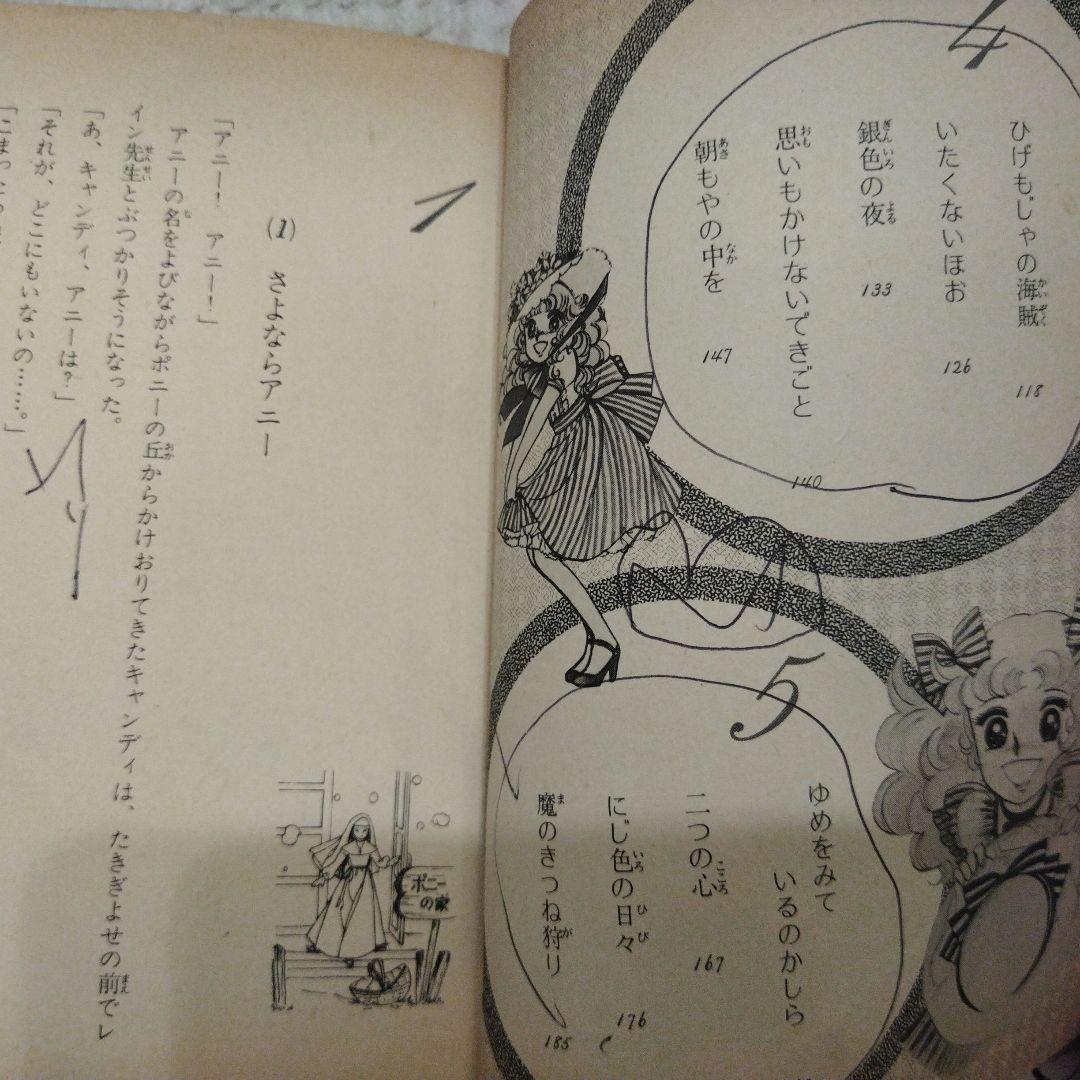 4
ひげもじゃの海賊 118
いたくないほお 126
銀色の夜 133
思いもかけないできごと 140
朝もやの中を 147
5
ゆめをみて
いるのかしら
二つの心 167
にじ色の日々 176
魔のきつね狩り 185
1
(1) さよならアニー
「アニー! アニー!」
アニーの名をよびながらポニーの丘からかけおりてきたキャンディは、たきぎよせの前でレ
イン先生とぶつかりそうになった。
「あ、キャンディ、アニーは?」
「それが、どこにもいないの……。」
ポニー
の家